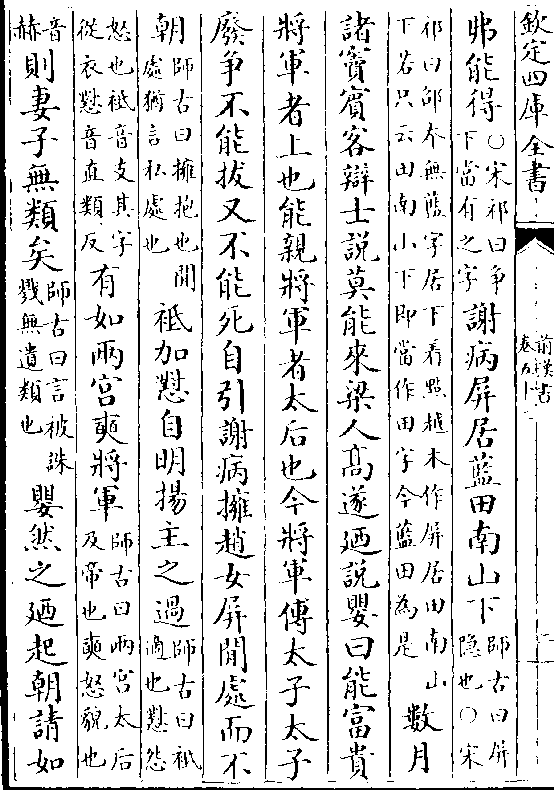 欽定四庫全書
前漢書
卷五十二
弗能得○宋祁曰爭下當有之字謝病屏居藍田南山下師古曰屏隱也○宋
祁曰邵本無藍字居下看點越本作屏居田南山下若只云田南山下即當作田字今藍田為是數月
諸竇賓客辯士說莫能來梁人髙遂廼說嬰曰能富貴
將軍者上也能親將軍者太后也今將軍傅太子太子
廢爭不能拔又不能死自引謝病擁趙女屏閒處而不
朝師古曰擁抱也閒處猶言私處也祗加懟自明揚主之過師古曰祗適也懟怨
怒也祗音支其字從衣懟音直類反有如兩宮奭將軍師古曰兩宮太后及帝也奭怒貌也
音赫則妻子無類矣師古曰言被誅戮無遺類也嬰然之廼起朝請如